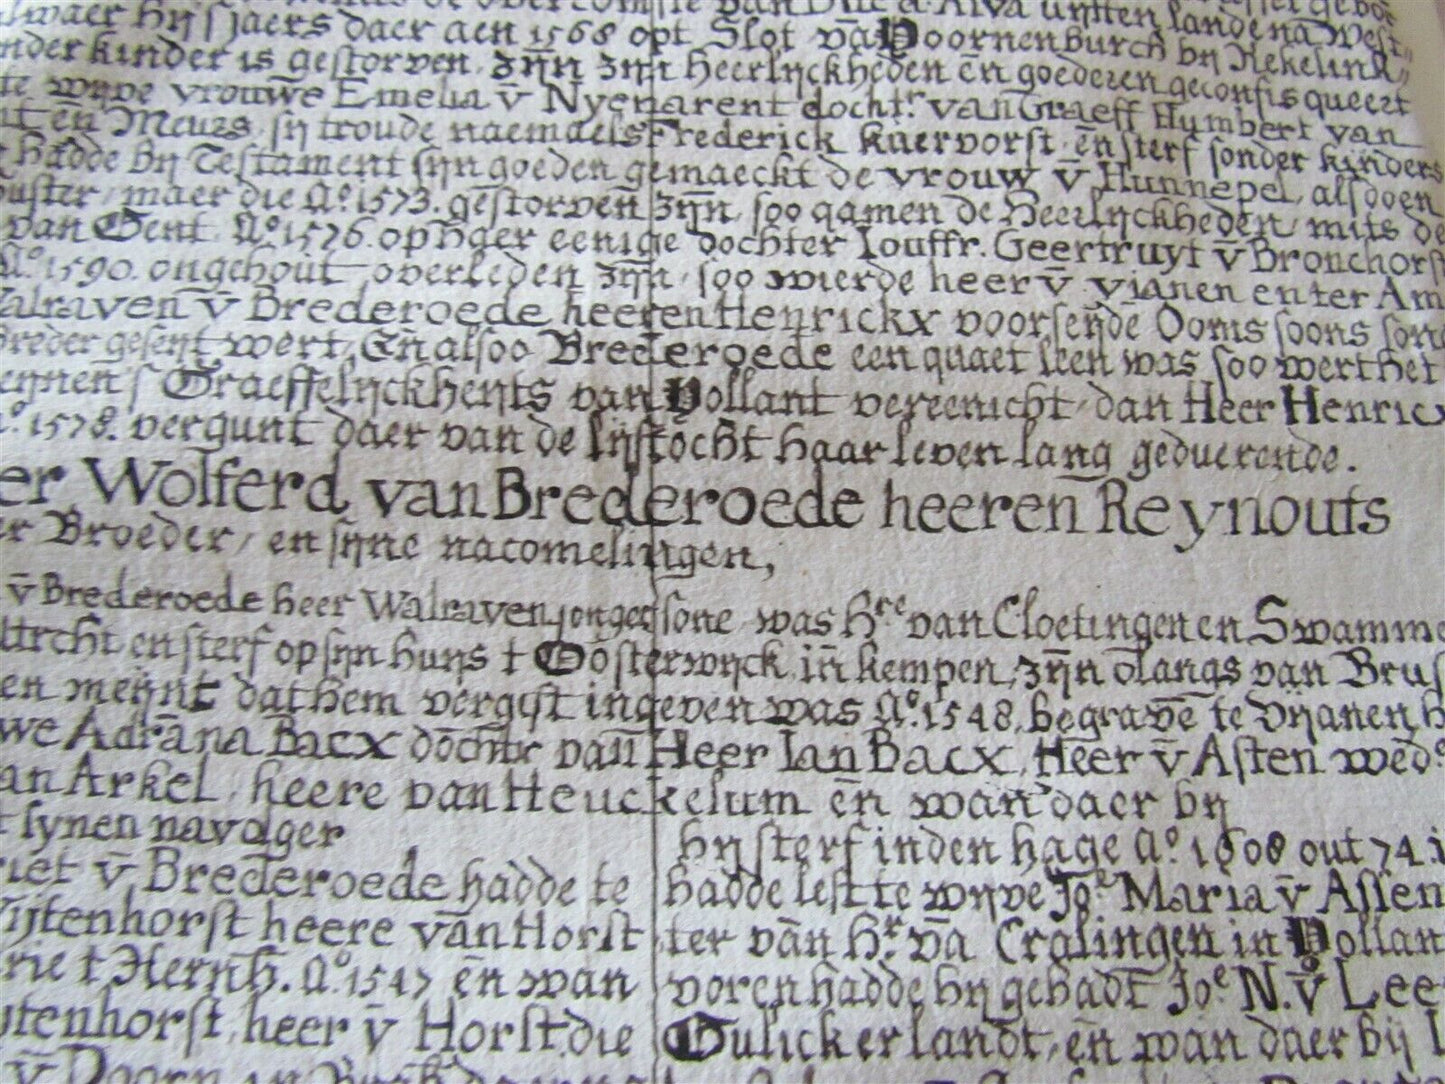 lwaer hij sjaers daer aen 1568 opt Slot vā Doornenburch bij Rekelink
nder kinder is gestorven, zijn zijn Heerlijckheden en goederen geconfisqueert
te wijve vrouwe Emelia v̄ Nyenarent docht.r van Graeff Humbert van
nt en Meurs, sij troude naemaels Frederick kuervorst, en sterf sonder kinders
hadde bij Testament sijn goeden gemaeckt de vrouw v̄ Hunnepel, alsdoen
ouster, maer die A.o 1573. gestorven zijn, soo qamen de Heerlijckheden, mits de
van Gent. A.o 1576. op haer eenige dochter Jouffr. Geertruyt v̄ Bronchorst
A.o 1590. ongehout overleden zijn, soo wierde heer v̄ vianen en ter Am
alraven v̄ Brederoede heeren Henrickx voorseijde Ooms soons sone
breder geseijt wert, En alsoo Brederoede een quaet leen was soo wert het
Graeffelijckheijts van Hollant vereenicht, dan Heer Henrick
A.o 1578. vergunt daer van de lijftocht haar leven lang geduerende.
er Wolferd van Brederoede heeren Reynouts
er Broeder, en sijne nacomelingen,
v̄ Brederoede heer Walraven jonger sone, was H.re van Cloetingen en Swamme
trcht, en sterf op sijn huijs t Oosterwijck, in kempen, zijn olangs van Brus
en meijnt dat hem vergift ingeven was A.o 1548, begravē te Vijanen, h
we Adrāna Bacx dochtr van Heer Ian Bacx, Heer v̄ Asten wed.e
an Arkel, heere van Heuckelum en wan daer bij
t synen navolger
hij sterf in den hage A.o 1608 out 74 i
riet v̄ Brederoede hadde te
hadde lest te wijve Jo.e Maria v̄ Assen
ijtenhorst heere van Horst
ter van H.r vā Cralingen in Hollan
rie t Hernh. A.o 1547 en wan
voren hadde hij gehadt Jo.e N. v̄ Lee
ijtenhorst, heer v̄ Horst, die
Gulickerlandt, en wan daer bij
v̄ Doorn in